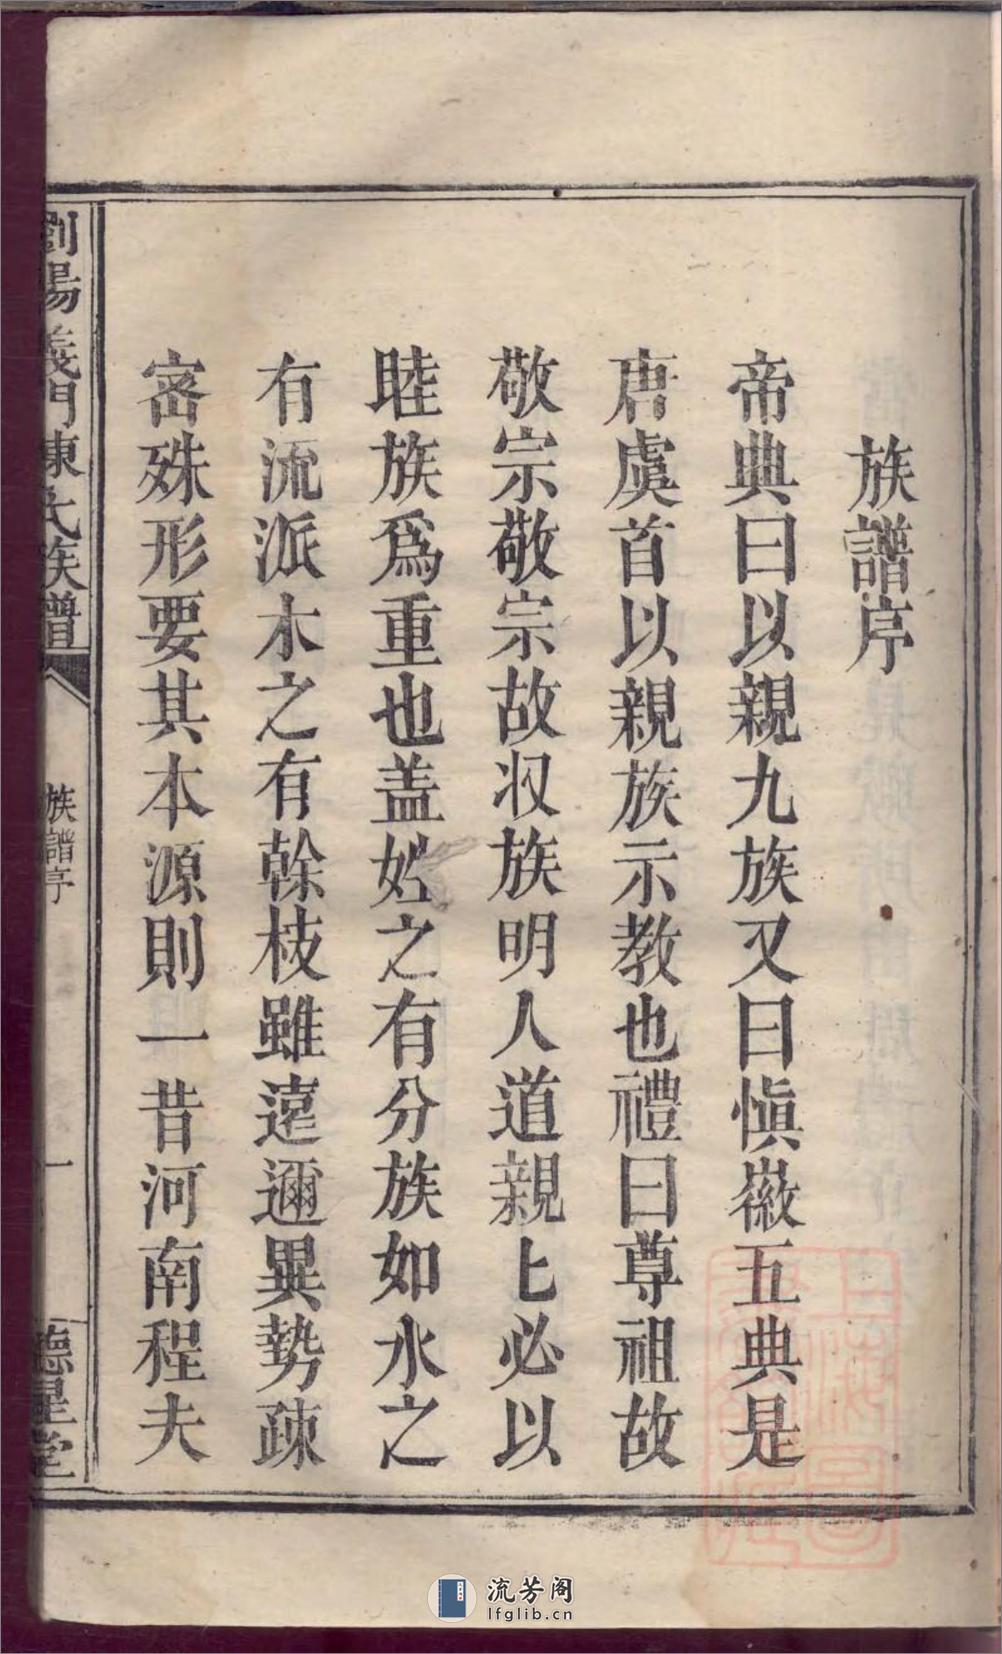 族譜序
帝典曰以親九族又曰愼徽五典是
唐虞首以親族示教也禮曰尊祖故
敬宗敬宗故収族明人道親匕必以
睦族爲重也盖姓之有分族如水之
有流派木之有榦枝雖遠邇異勢疎
宻殊形要其本源則一昔河南程夫
劉陽義門陳氏族譜
族譜序
一
德星堂
流芳阁
lfglib.cn